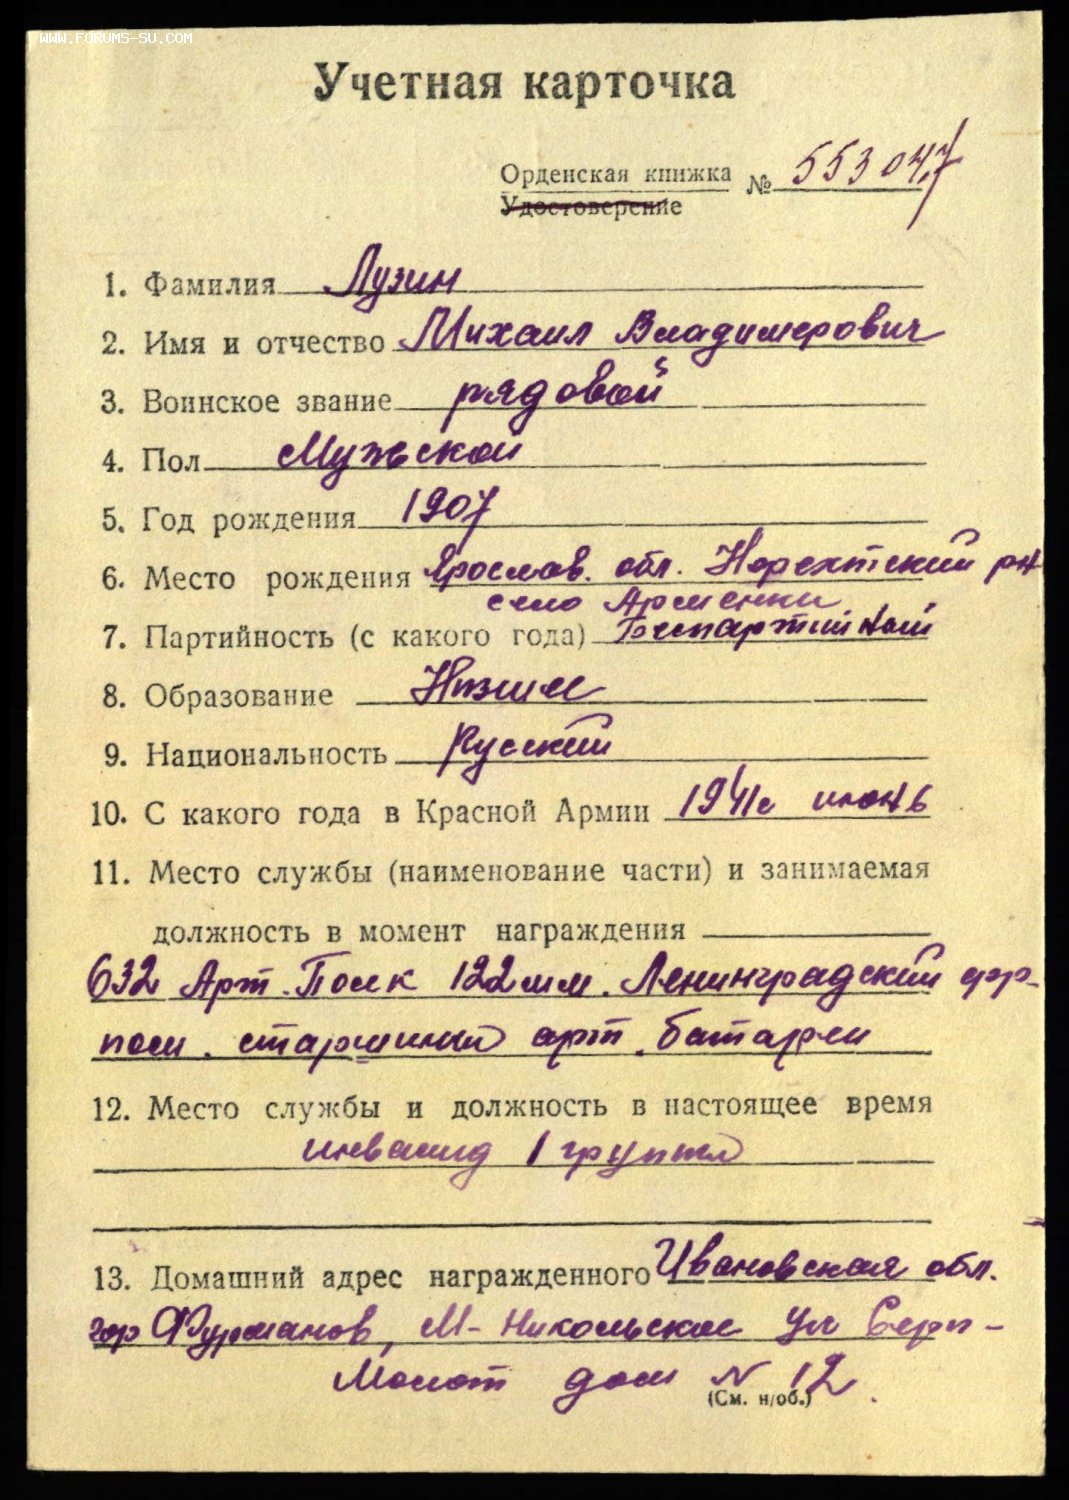 WWW.FORUMS-SU.COM
Учетная карточка
Орденская книжка № 553047
Удостоверение
1. Фамилия Лузин
2. Имя и отчество Михаил Владимерович
3. Воинское звание рядовой
4. Пол Мужской
5. Год рождения 1907
6. Место рождения Ярослав. обл. Нерехтский рн
село Арменки
7. Партийность (с какого года) Беспартийный
8. Образование Низшее
9. Национальность Русский
10. С какого года в Красной Армии 1941 с июнь
11. Место службы (наименование части) и занимаемая
должность в момент награждения
632 Арт. Полк 122 мм. Ленинградский
старшина арт. батареи
12. Место службы и должность в настоящее время
инвалид 1 группы
13. Домашний адрес награжденного Ивановская обл.
гор Фурманов, М-Никольское ул Серп-
Молот дом № 12.
(См. н/об.)